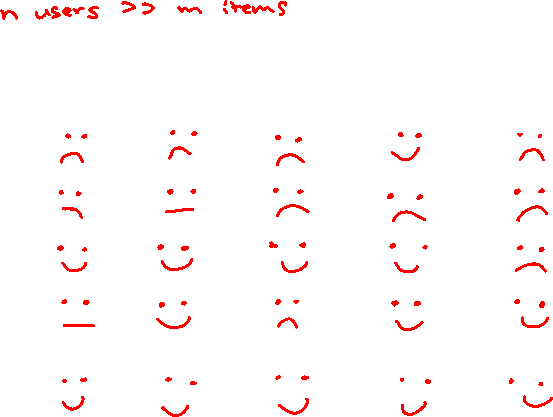 n users >> m items